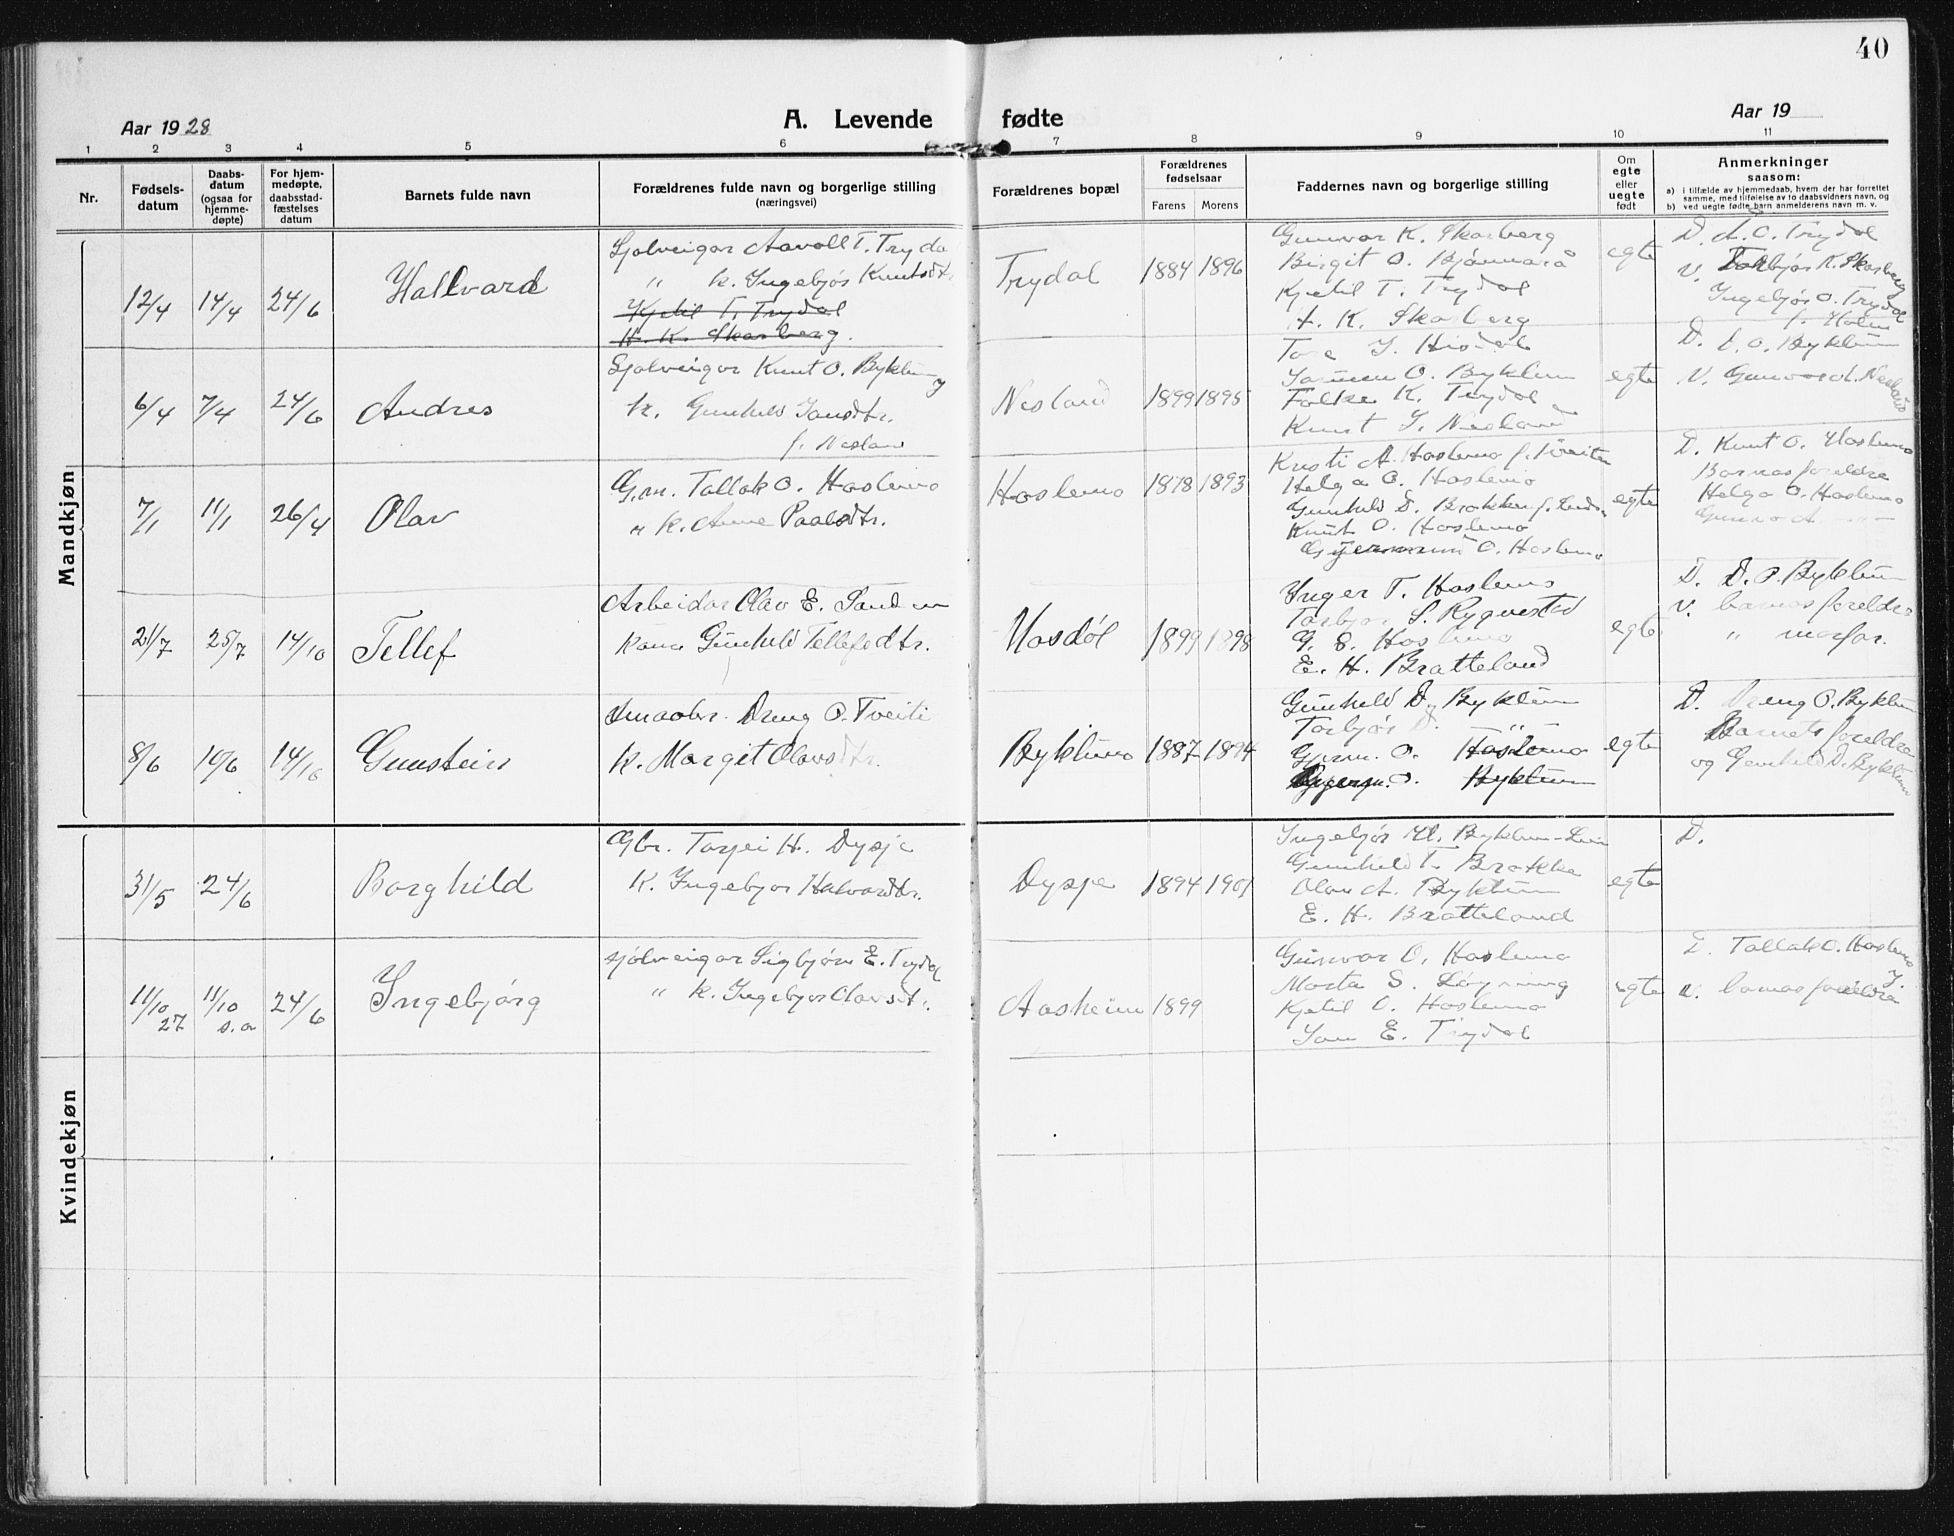 40
Aar 1928
A. Levende fødte
Aar 19
1 2 3 4 5 6 7 8 9 10 11
Nr.
Fødsels-
datum
Daabs-
datum
(ogsaa for
hjemme-
døpte)
For hjem-
medøpte,
daabsstad-
fæstelses
datum
Barnets fulde navn
Forældrenes fulde navn og borgerlige stilling
(næringsvei)
Forældrenes bopæl
Forældrenes
fødselsaar
Farens Morens
Faddernes navn og borgerlige stilling
Om
egte
eller
uegte
født
Anmerkninger
saasom:
a) i tilfælde av hjemmedaab, hvem der har forrettet
samme, med tilføielse av to daabsvidners navn, og
b) ved uegte fødte barn anmelderens navn m. v.
Mandkjøn
12/4 14/4 24/6
Hallvard
Sjølveigar Aavoll T. Trydal
" k. Ingebjør Knutsdtr.
Kjetil T. Trydal
H. K. Skarberg.
Trydal
1884 1896
Gunvor K. Skarberg
Birgit O. Bjønnarå
Kjetil T. Trydal
A. K. Skarberg
egte
D. A. O. Trydal
v. Torbjør K. Skarberg
Ingebjør O. Trydal
f. Holen
6/4 7/4 24/6
Andres
Sjølveigar Knut O. Byklum
k. Gunhild
f. Nesland
Nesland
1899 1895
Tore J. Hisdal
O. Byklum
Folke K. Trydal
Knut J. Nesland
egte
D. O. Byklum
v. Gunvor A. Nesland
7/1 11/1 26/4
Olav
G.m. Tallak O. Hoslemo
" k. Anne Paalsdtr.
Hoslemo
1878 1893
Kristi A. Hoslemo f.
Helga O. Hoslemo
Gunhild D. Brokke f.
Knut O. Hoslemo
Gjermund O. Hoslemo
egte
D. Knut O. Hoslemo
Barnas foreldre
Helga O. Hoslemo
21/7 25/7 14/10
Tellef
Arbeidar Olav E. Sand
kona Gunhild Tellefsdtr.
Mosdøl
1899 1898
Inger T. Hoslemo
Torbjør S. Rygnestad
G. E. Hoslemo
E. H. Bratteland
egte
D. D. O. Byklum
v. barnas foreldre
" morfar.
8/6 10/6 14/10
Gunstein
Smaabr. Dreng O. Tveiti
k. Margit Olavsdtr.
Byklum
1887 1894
Gunhild D. Byklum
Torbjør D. "
Gjerm. O. Hoslemo
Gjerm. O. Byklum
egte
D. Dreng O. Byklum
Barnets foreldre
og Gunhild D. Byklum
Kvindekjøn
31/5 24/6
Borghild
Gbr. Torjei H. Dysje
K. Ingebjør Halvardtr.
Dysje
1894 1901
Ingebjør H. Byklum
Gunhild T. Brokke
Olav A. Byklum
E. H. Bratteland
egte
D.
11/10 27 11/10 s.a 24/6
Ingebjørg
sjølveigar Sigbjørn E. Trydal
" k. Ingebjør Olavsdtr.
Aasheim
1899
Gunvor O. Hoslemo
Marta S. Løyning
Kjetil O. Hoslemo
Jon E. Trydal
egte
D. Tallak O. Hoslemo
v. barnas foreldre